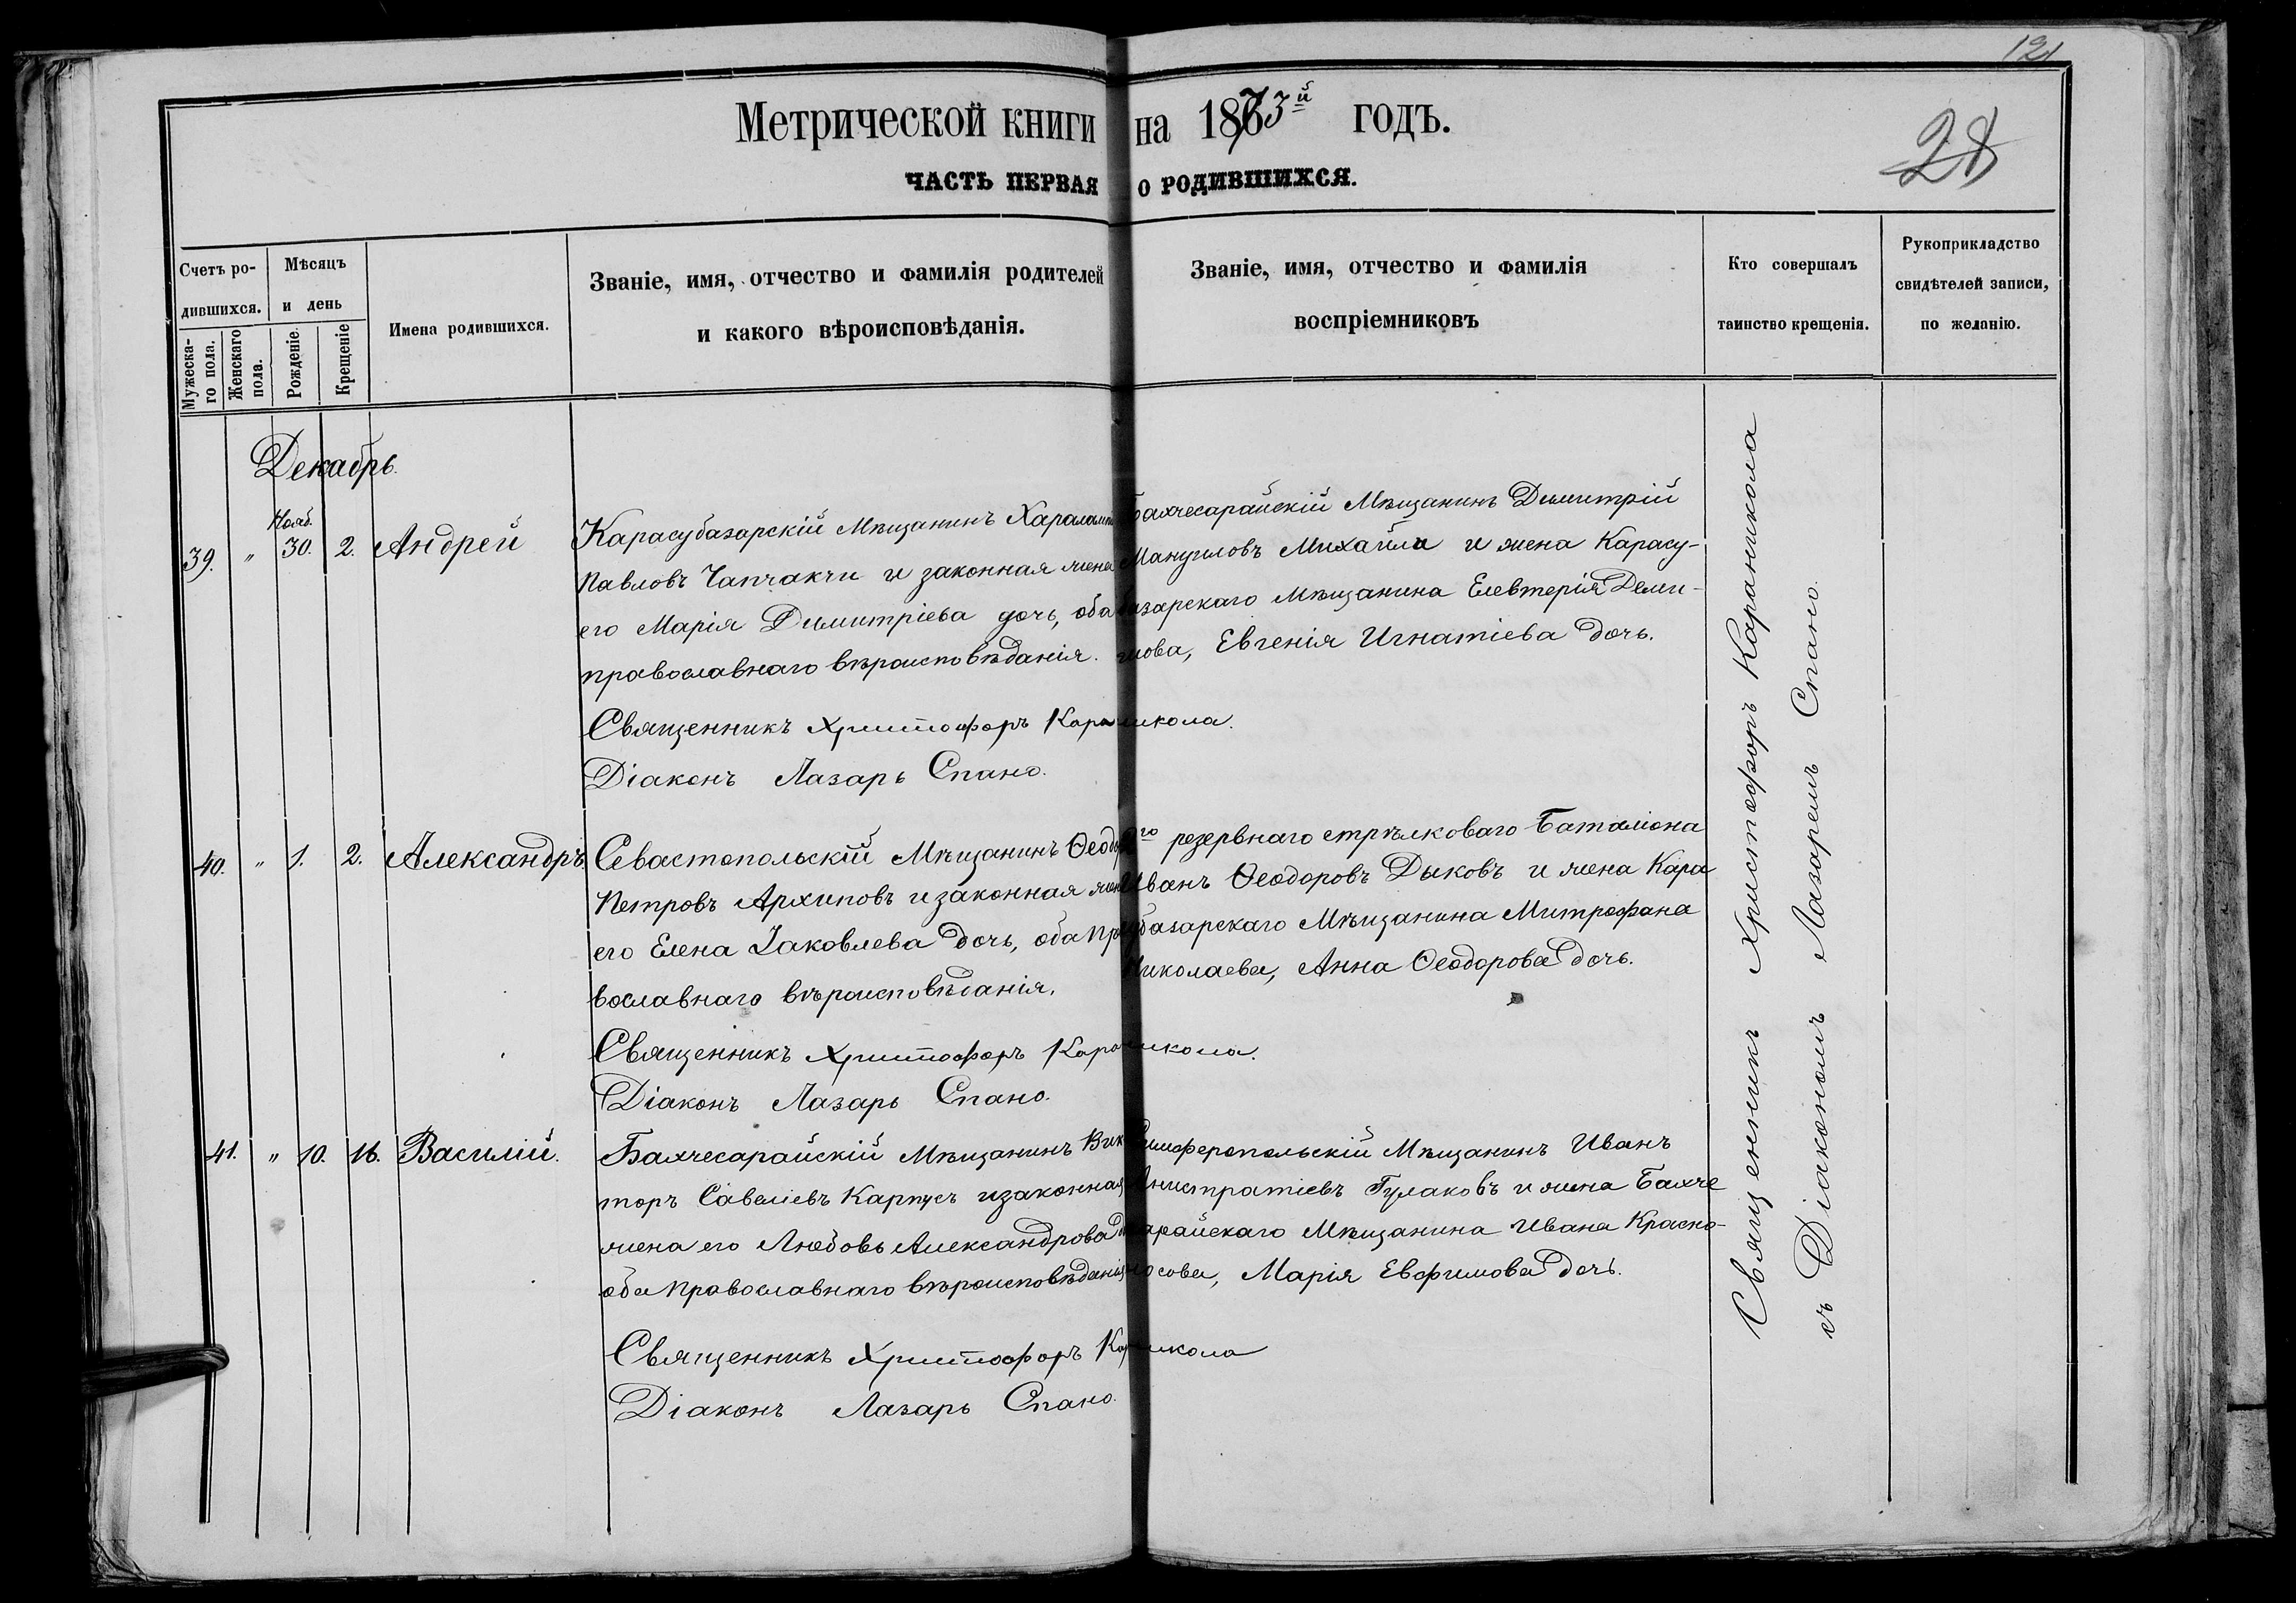 121
28
Метрической книги на 1873й годъ.
ЧАСТЬ ПЕРВАЯ О РОДИВШИХСЯ.
Счетъ ро-
дившихся.
Мужеска-
го пола.
Женскаго
пола.
Мѣсяцъ
и день
Рожденіе.
Крещеніе
Имена родившихся.
Званіе, имя, отчество и фамилія родителей
и какого вѣроисповѣданія.
Званіе, имя, отчество и фамилія
воспріемниковъ
Кто совершалъ
таинство крещенія.
Рукоприкладство
свидѣтелей записи,
по желанію.
Декабрь.
39. " Нояб. 30. 2. Андрей
Карасубазарскій Мѣщанинъ Харалам
Павловъ Чапчакчи и законная жена
его Марія Димитріева дочь, оба
православнаго вѣроисповѣданія.
Бахчесарайскій Мѣщанинъ Димитрій
Мануиловъ Михайли и жена Карасу-
базарскаго Мѣщанина Елевтерія Деми-
Евгенія Игнатіева дочь.
Священникъ Христофоръ Караникола.
Діаконъ Лазарь Спано.
40. " 1. 2. Александръ
Севастопольскій Мѣщанинъ Ѳеодоръ
Петровъ Архиповъ и законная жена
его Елена Іаковлева дочь, оба пра
вославнаго вѣроисповѣданія.
го резервнаго стрѣлковаго Баталіона
Иванъ Ѳеодоровъ Дыковъ и жена Кара
субазарскаго Мѣщанина Митрофана
Николаева, Анна Ѳеодорова дочь.
Священникъ Христофоръ Караникола.
Діаконъ Лазарь Спано.
41. " 10. 16. Василій.
Бахчесарайскій Мѣщанинъ Вик
торъ Савеліевъ Карпусъ и законная
жена его Любовь Александрова
оба православнаго вѣроисповѣданія
Симферопольскій Мѣщанинъ Иванъ
Гулаковъ и жена Бахче
сарайскаго Мѣщанина Ивана Красно-
носова, Марія Евфимова дочь.
Священникъ Христофоръ Караникола
Діаконъ Лазарь Спано.
Священникъ Христофоръ Караникола
съ Діакономъ Лазаремъ Спано.